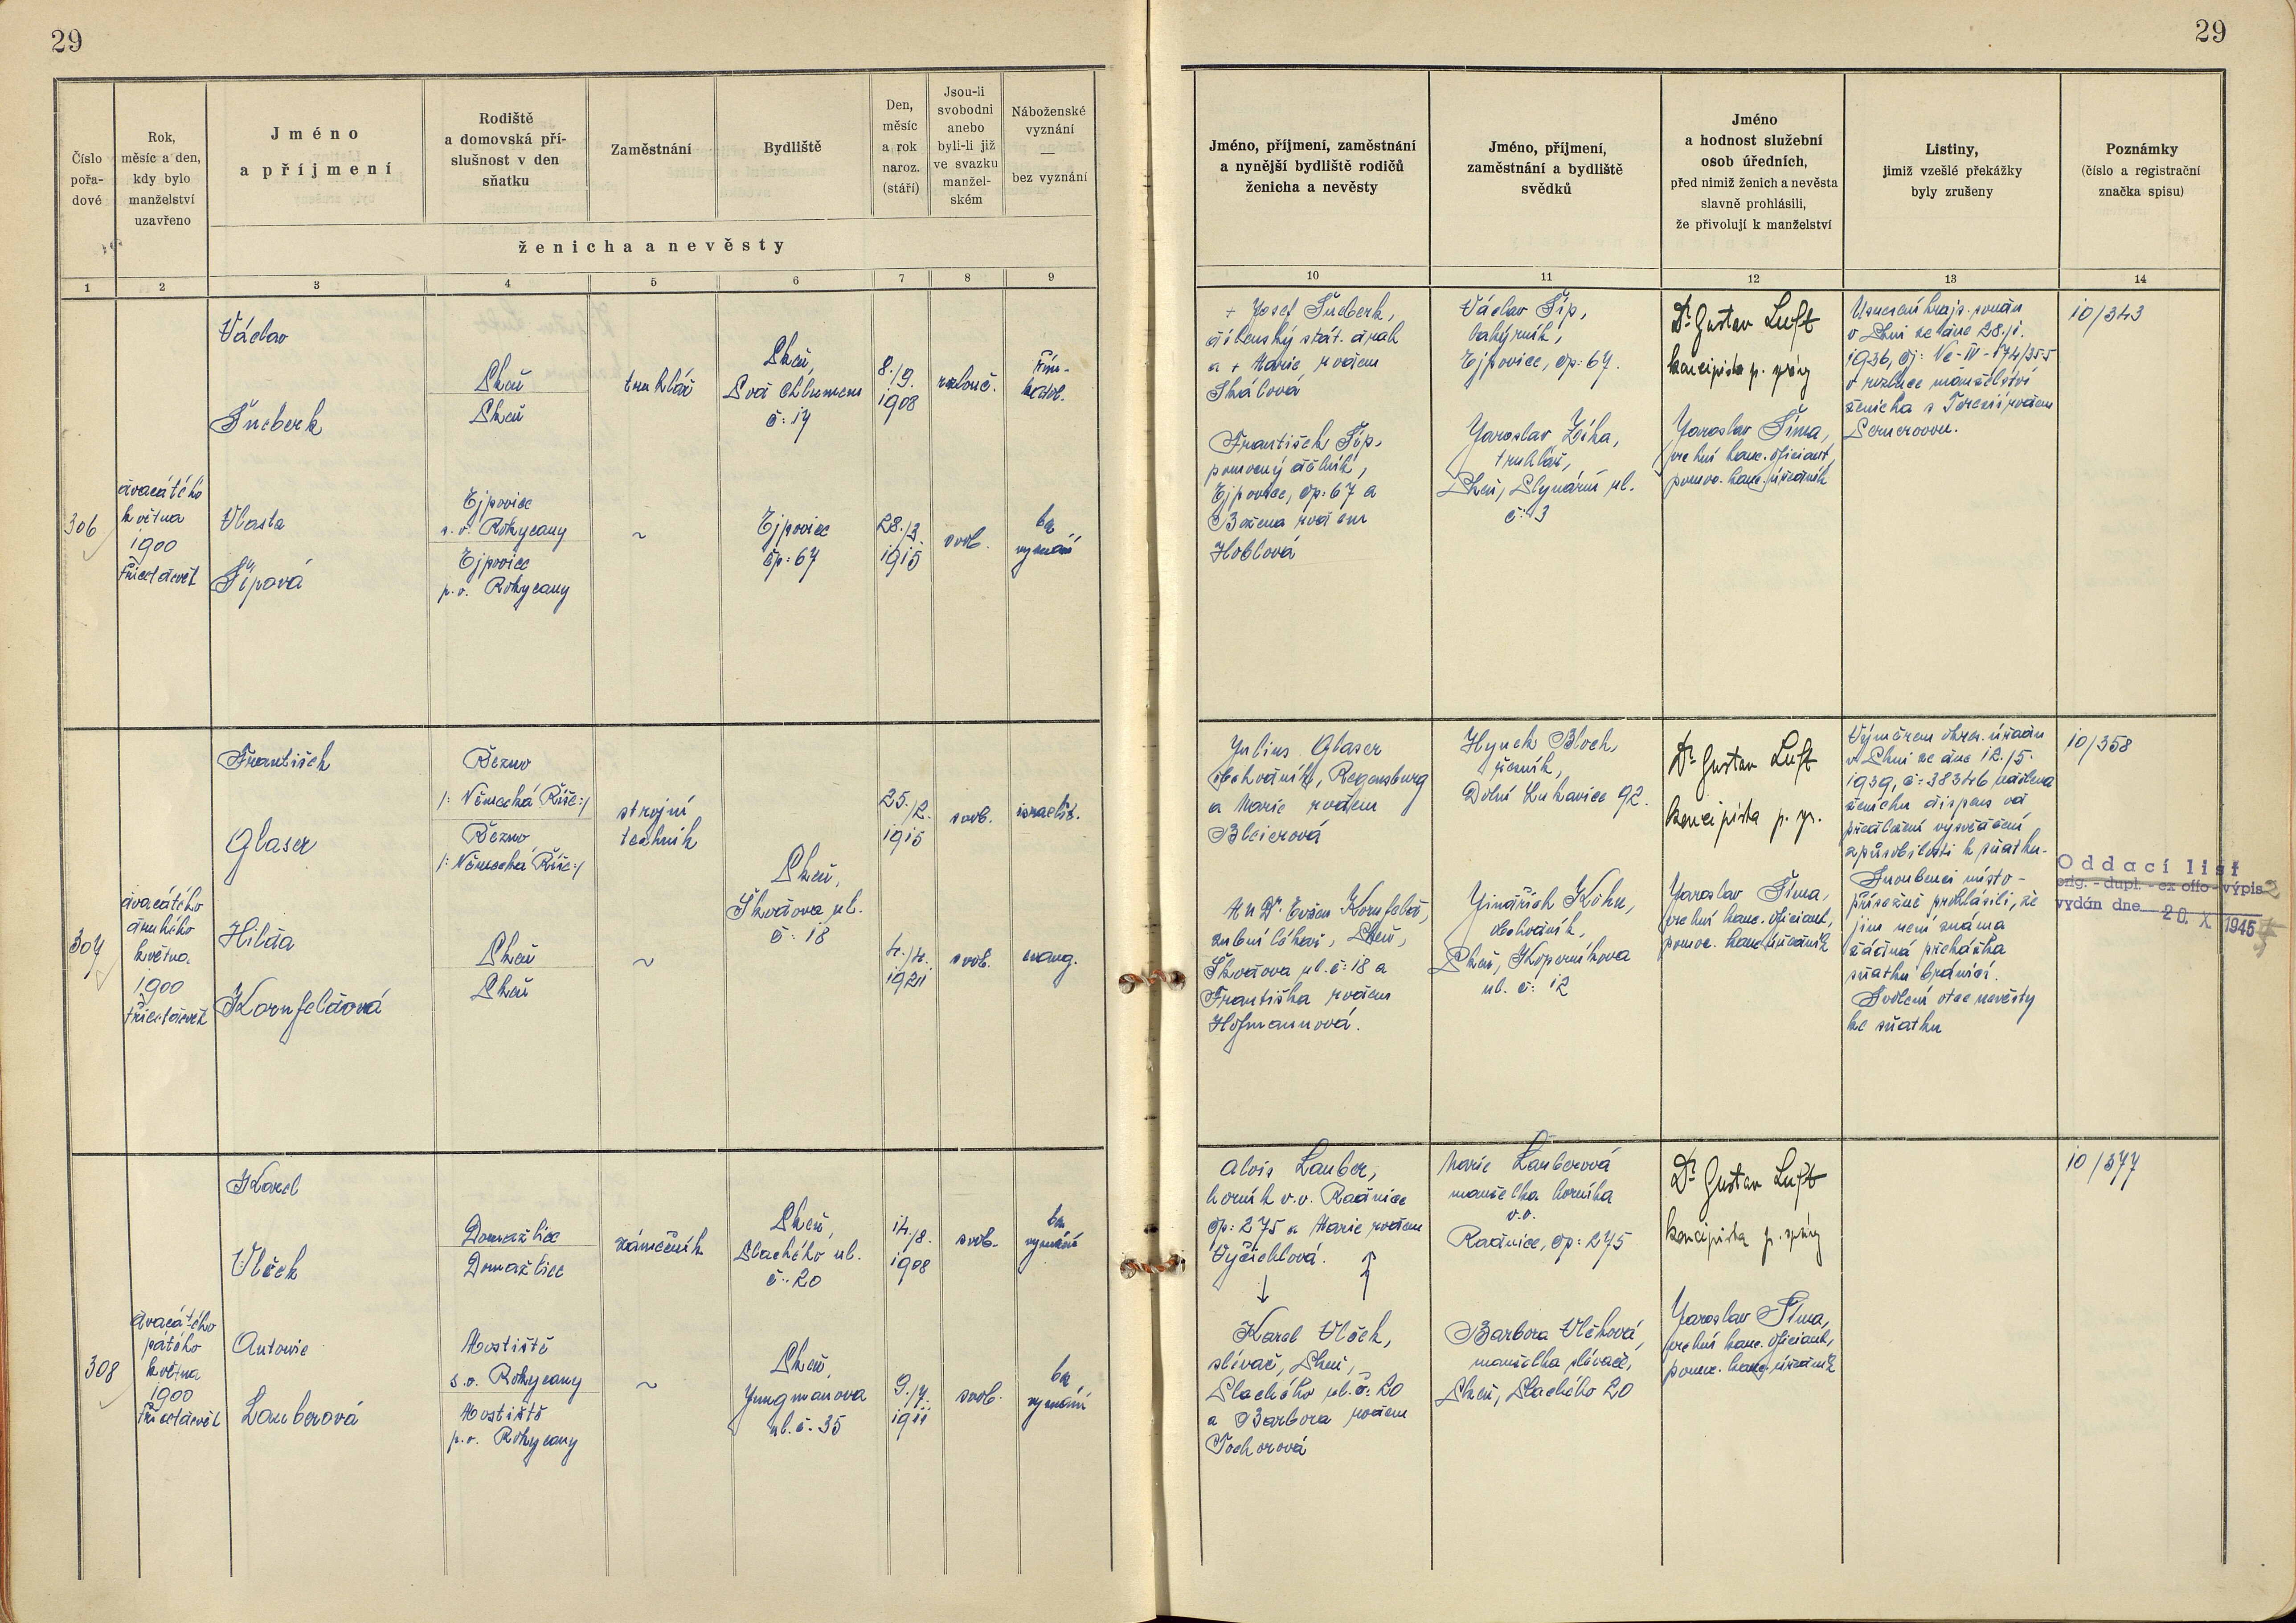 29
29
Číslo
pořa-
dové
Rok,
měsíc a den,
kdy bylo
manželství
uzavřeno
Jméno
a příjmení
Rodiště
a domovská pří-
slušnost v den
sňatku
Zaměstnání
Bydliště
Den,
měsíc
a rok
naroz.
(stáří)
Jsou-li
svobodni
anebo
byli-li již
ve svazku
manžel-
ském
Náboženské
vyznání
—
bez vyznání
ženicha a nevěsty
1 2 3 4 5 6 7 8 9
Jméno, příjmení, zaměstnání
a nynější bydliště rodičů
ženicha a nevěsty
Jméno, příjmení,
zaměstnání a bydliště
svědků
Jméno
a hodnost služební
osob úředních,
před nimiž ženich a nevěsta
slavně prohlásili,
že přivolují k manželství
Listiny,
jimiž vzešlé překážky
byly zrušeny
Poznámky
(číslo a registrační
značka spisu)
10 11 12 13 14
306
dvacátého
května
1900
třicetdevět
Václav
Šneberk
Plzeň
Plzeň
truhlář
Plzeň,
Pod Chlumem
č: 14
8./9.
1908
rozlouč.
řím-
katol.
Vlasta
Šípová
Ejpovice
s.o. Rokycany
Ejpovice
p.o. Rokycany
~
Ejpovice
čp: 67
28./3.
1915
svob.
bez
vyznání
+ Josef Šneberk,
dělnský stát. drah
a + Marie rodem
Skálová
František Šíp,
pomocný dělník,
Ejpovice, čp: 67 a
Božena rodem
Hoblová
Václav Šíp,
Ejpovice, čp: 67.
Jaroslav Zíha,
truhlář,
Plzeň, Mlynární ul.
č: 3
Dr. Gustav Luft
koncipista p. správy
Jaroslav Šíma,
vrchní kanc. oficiant,
pomoc. kanc. úředník
Usnesení krajs. soudu
v Plzni ze dne 28./1.
1936, čj: Nc-IV-174/35-5
o rozluce manželství
ženicha s Terezií rodem
10/343
307
dvacátého
druhého
května
1900
třicetdevět
František
Glaser
Řezno
/: Německá Říše:/
Řezno
/: Německá Říše:/
strojní
technik
25./2.
1915
svob.
israelit.
Plzeň,
Škodova ul.
č: 18
Hilda
Kornfeldová
Plzeň
Plzeň
~
4./4.
1921
svob.
evang.
Julius Glaser
obchodník, Regensburg
a Marie rodem
Bleierová
MUDr. Evžen Kornfeld,
zubní lékař, Plzeň,
Škodova ul. č: 18 a
Františka rodem
Hofmannová.
Hynek Bloch,
řezník,
Dolní Lukavice 92.
Jindřich Kohn,
obchodník,
Plzeň, Koperníkova
ul. č: 12
Dr. Gustav Luft
koncipista p. spr.
Jaroslav Šíma,
vrchní kanc. oficiant,
pomoc. kanc. úředník
Výměrem okres. úřadu
v Plzni ze dne 12./5.
1939, č: 38346 udělena
ženichu dispens od
předložení vysvědčení
způsobilosti k sňatku.
Snoubenci místo-
přísežně prohlásili, že
jim není známa
žádná překážka
sňatku bránící.
Svolení otce nevěsty
ke sňatku
10/358
Oddací list
orig. - dupl. - ex offo - výpis
vydán dne 20. X 1945
308
dvacátého
pátého
května
1900
třicetdevět
Karel
Vlček
Domažlice
Domažlice
zámečník
Plzeň,
Plachého ul.
č: 20
14./8.
1908
svob.
bez
vyznání
Antonie
Lauberová
Mostiště
s.o. Rokycany
Mostiště
p.o. Rokycany
~
Plzeň,
Jungmanova
ul. č: 35
9./7.
1911
svob.
bez
vyznání
Alois Lauber,
horník v.v. Radnice
čp: 275 a Marie rodem
Vyčichlová.
Karel Vlček,
slévač, Plzeň,
Plachého ul. č: 20
a Barbora rodem
Tochorová
Marie Lauberová
manželka horníka
v.v.
Radnice, čp: 275
Barbora Vlčková,
manželka slévače,
Plzeň, Plachého 20
Dr. Gustav Luft
koncipista p. správy
Jaroslav Šíma,
vrchní kanc. oficiant,
pomoc. kanc. úředník
10/377